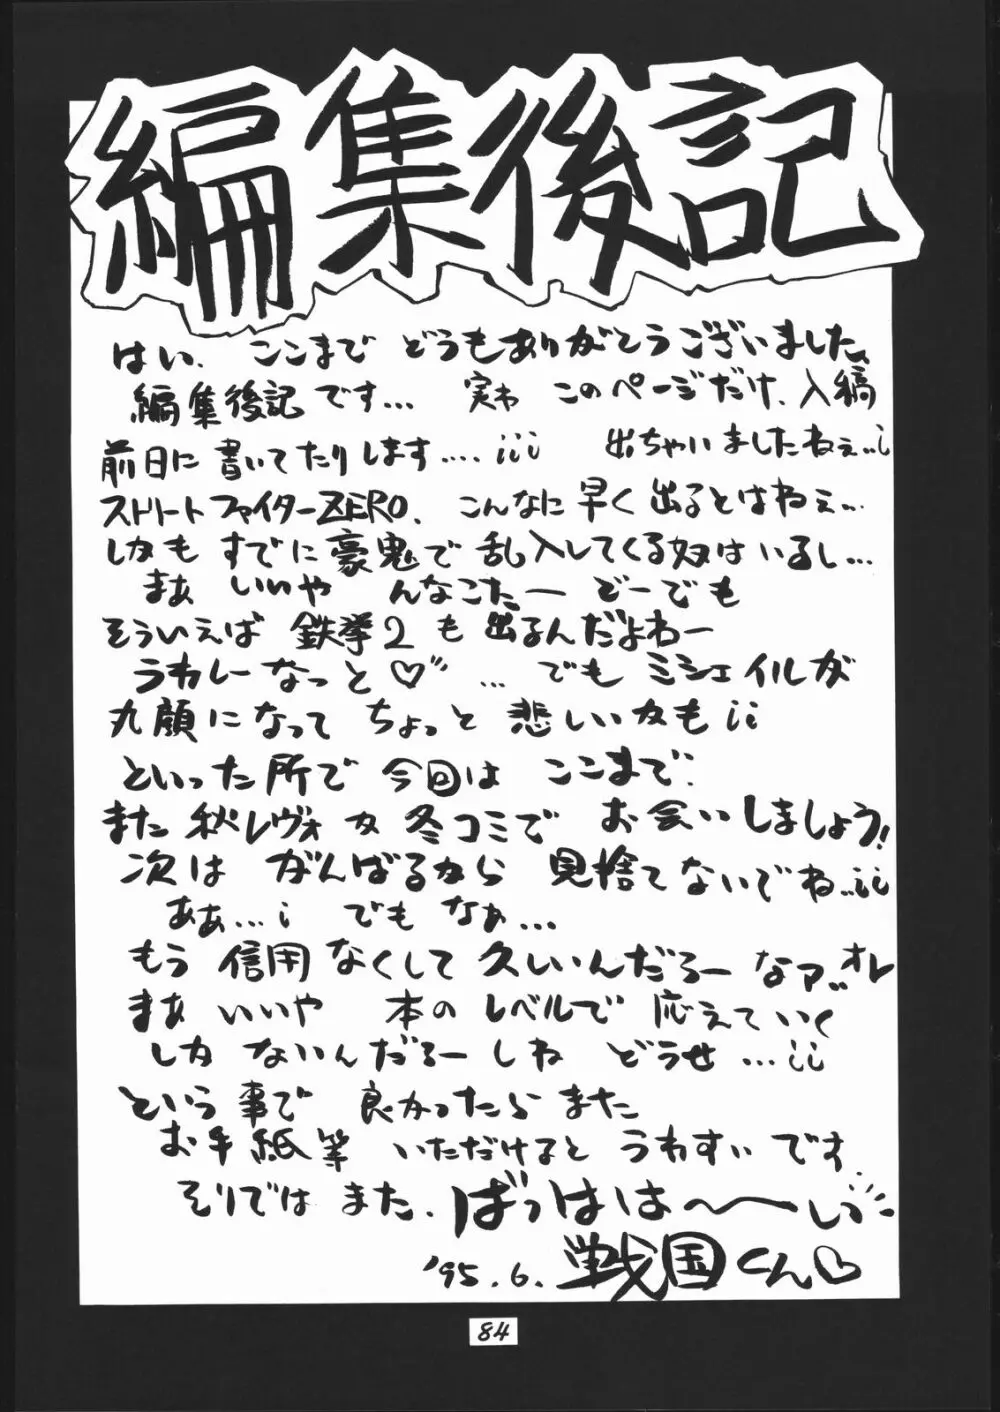 編集後記
はい、ここまで どうもありがとうございました、
編集後記です… 実わ このページだけ、入稿
前日に書いてたりします….¡¡¡ 出ちゃいましたねぇ..¡
ストリートファイターZERO、こんなに早く出るとはねぇ…
しかも すでに豪鬼で乱入してくる奴はいるし…
まあ いいや んなこたー どーでも
そういえば 鉄拳2も出るんだよねー
うれしーなっと♡〃 … でも ミシェイルが
丸顔になって ちょっと 悲しいかも¡¡
といった所で 今回は ここまで.
また秋レヴォか冬コミで お会いしましょう!
次は がんばるから 見捨てないでね..¡¡
ああ…¡ でも なぁ…
もう 信用なくして久しいんだろーなァ..オレ
まあ いいや 本の レベルで 応えていく
しか ないんだろーしね どうせ …¡¡
という事で 良かったら また
お手紙等 いただけると うれすぃです.
そりでは また. ばっはは〜〜いっ
'95.6. 戦国くん♡
84